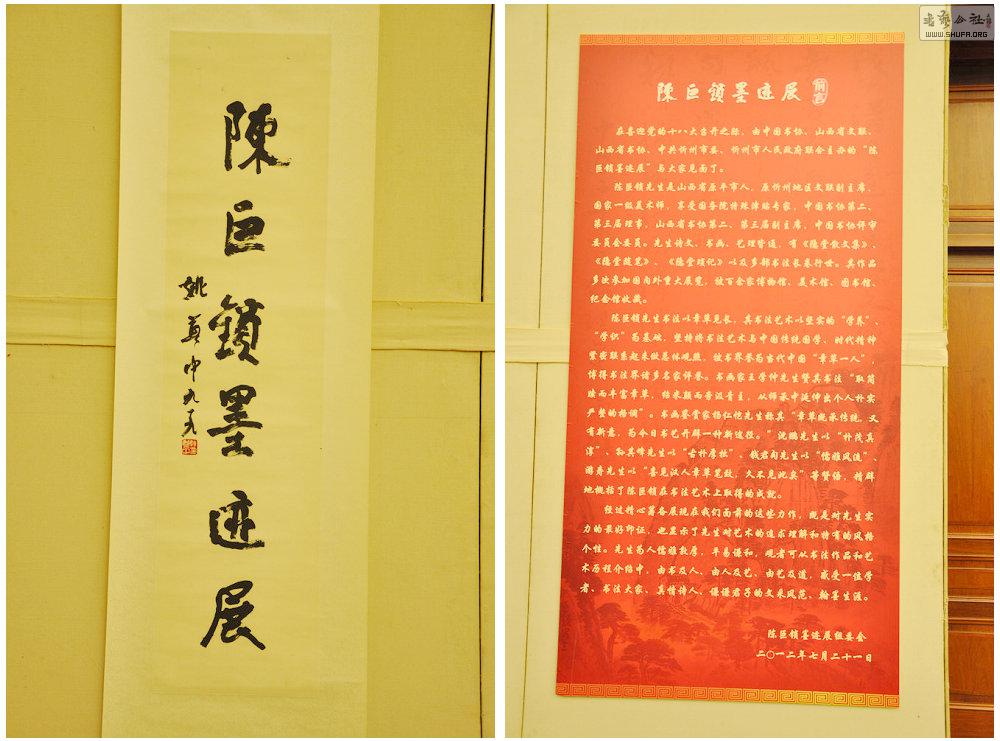 陳巨鎖墨迹展
姚奠中九十
陳巨鎖墨迹展 前言
在喜迎党的十八大召开之际，由中国书协、山西省文联、
山西省书协、中共忻州市委、忻州市人民政府联合主办的“陈
巨锁墨迹展”与大家见面了。
陈巨锁先生是山西省原平市人，原忻州地区文联副主席，
国家一级美术师，享受国务院特殊津贴专家，中国书协第二、
第三届理事，山西省书协第二、第三届副主席，中国书协评审
委员会委员。先生诗文、书画、艺理皆通，有《隐堂散文集》、
《隐堂随笔》、《隐堂琐记》以及多部书法长卷行世。其作品
多次参加国内外重大展览，被百余家博物馆、美术馆、图书馆、
纪念馆收藏。
陈巨锁先生书法以章草见长，其书法艺术以坚实的“学养”、
“学识”为基础，坚持将书法艺术与中国传统国学、时代精神
紧密联系起来做总体观照，被书界誉为当代中国“章草一人”，
博得书法界诸多名家评誉。书画家王学仲先生赞其书法“取简
牍而丰富章草，结米颠而晋汲香主，从师承中延伸出个人朴实
严整的格调”。书画鉴赏家杨仁恺先生称其“章草既承传统，又
有新意，为今日书艺开辟一种新途径。”沈鹏先生以“朴茂真
淳”、孙其峰先生以“古朴厚拙”、钱君匋先生以“儒雅风流”、
游寿先生以“喜见汉人章草笔致，久不见此矣”等赞语，精辟
地概括了陈巨锁在书法艺术上取得的成就。
经过精心筹备展现在我们面前的这些力作，既是对先生实
力的最好印证，也显示了先生对艺术的追求理解和特有的风格
个性。先生为人儒雅敦厚，平易谦和，观者可从书法作品和艺
术历程介绍中，由书及人、由人及艺、由艺及道，感受一位学
者、书法大家、真情诗人、谦谦君子的文采风范、翰墨生涯。
陈巨锁墨迹展组委会
二〇一二年七月二十一日
WWW.SHUFA.ORG